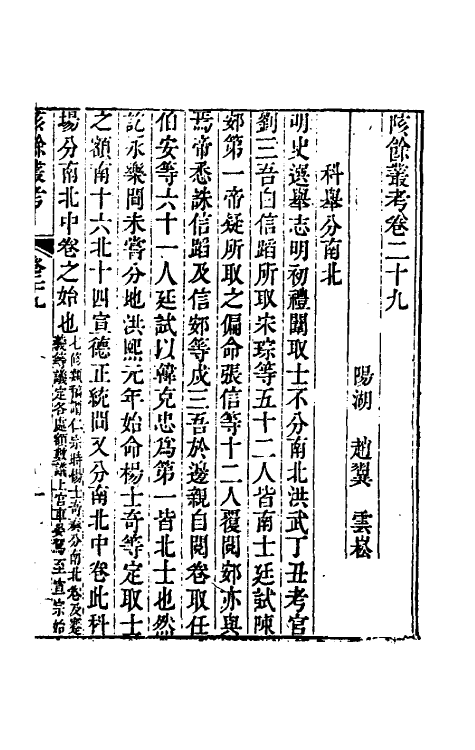 陔餘叢考卷二十九
陽湖 趙翼 雲崧
科舉分南北
明史選舉志明初禮闈取士不分南北洪武丁丑考官
劉三吾白信蹈所取宋琮等五十二人皆南士廷試陳
䢿第一帝疑所取之偏命張信等十二人覆閱䢿亦與
焉帝悉誅信蹈及信䢿等戍三吾於邊親自閱卷取任
伯安等六十一人廷試以韓克忠爲第一皆北士也然
記永樂間未嘗分地洪熙元年始命楊士奇等定取士
之額南十六北十四宣德正統間又分南北中卷此科
場分南北中卷之始也
七修類稿謂仁宗時楊士奇奏分南北卷及蹇
義等議定各處額數議上宮車晏駕至宣宗始
陔餘叢考
卷二九
一